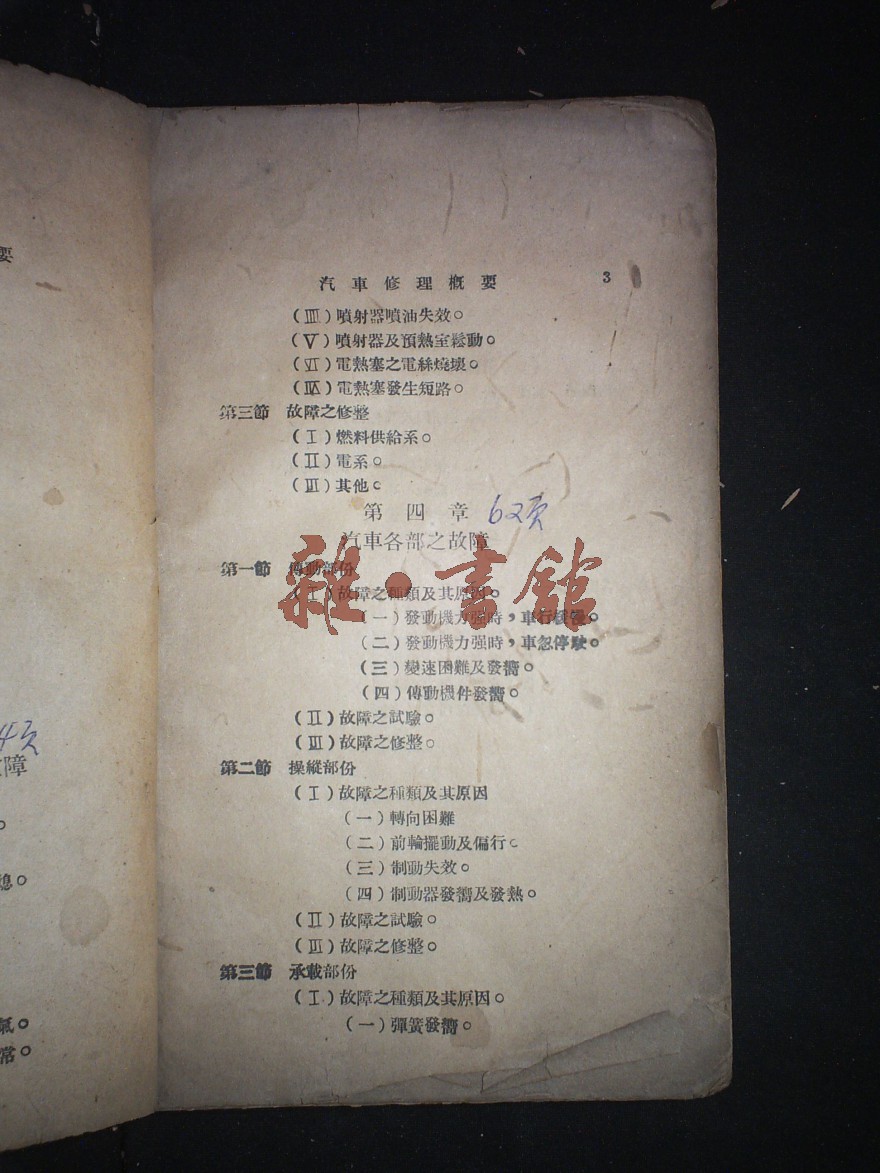 汽車修理概要 3
(Ⅲ)噴射器噴油失效。
(Ⅴ)噴射器及預熱室鬆動。
(Ⅵ)電熱塞之電絲燒壞。
(Ⅸ)電熱塞發生短路。
第三節 故障之修整
(Ⅰ)燃料供給系。
(Ⅱ)電系。
(Ⅲ)其他。
第四章 62页
汽車各部之故障
第一節 傳動部份
(Ⅰ)故障之種類及其原因。
(一)發動機力强時,車行緩慢。
(二)發動機力强時,車忽停駛。
(三)變速困難及發嚮。
(四)傳動機件發嚮。
(Ⅱ)故障之試驗。
(Ⅲ)故障之修整。
第二節 操縱部份
(Ⅰ)故障之種類及其原因
(一)轉向困難
(二)前輪擺動及偏行。
(三)制動失效。
(四)制動器發嚮及發熱。
(Ⅱ)故障之試驗。
(Ⅲ)故障之修整。
第三節 承載部份
(Ⅰ)故障之種類及其原因。
(一)彈簧發嚮。
雜·書館
要
4页
障
。
熄。
氣。
常。